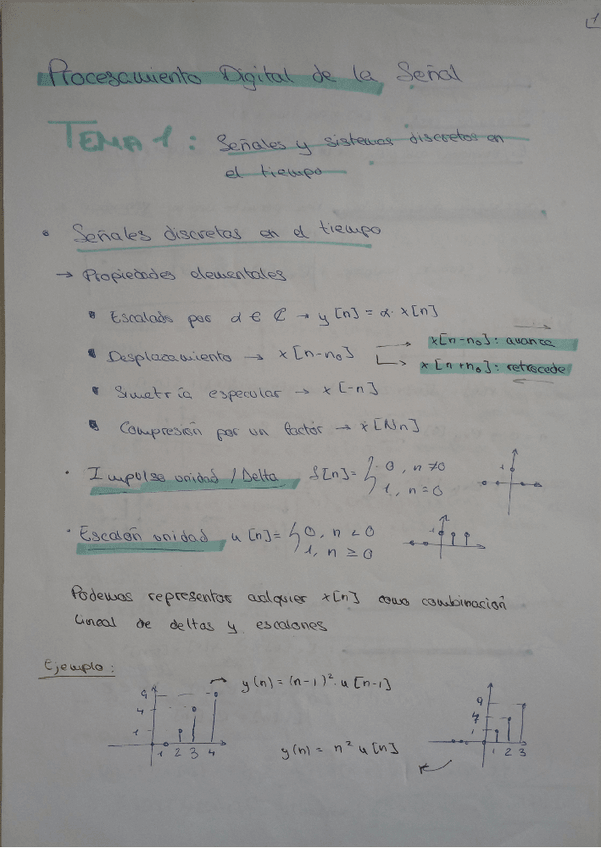 1
Procesamiento Digital de la Señal
TEMA 1: Señales y sistemas discretos en
el tiempo
• Señales discretas en el tiempo
→ Propiedades elementales
• Escalado por α ∈ ℂ → y[n] = α · x[n]
• Desplazamiento → x[n-n₀] → x[n-n₀]: avanza
↳ x[n+n₀]: retrocede
• Simetría especular → x[-n]
• Compresión por un factor → x[Nn]
• Impulso unidad / Delta δ[n] = { 0, n ≠ 0
1, n = 0
1
• Escalón unidad u[n] = { 0, n < 0
1, n ≥ 0
1
Podemos representar cualquier x[n] como combinación
lineal de deltas y escalones
Ejemplo:
y(n) = (n-1)² · u[n-1]
9
4
1
1 2 3 4
y(n) = n² u[n]
9
4
1
1 2 3